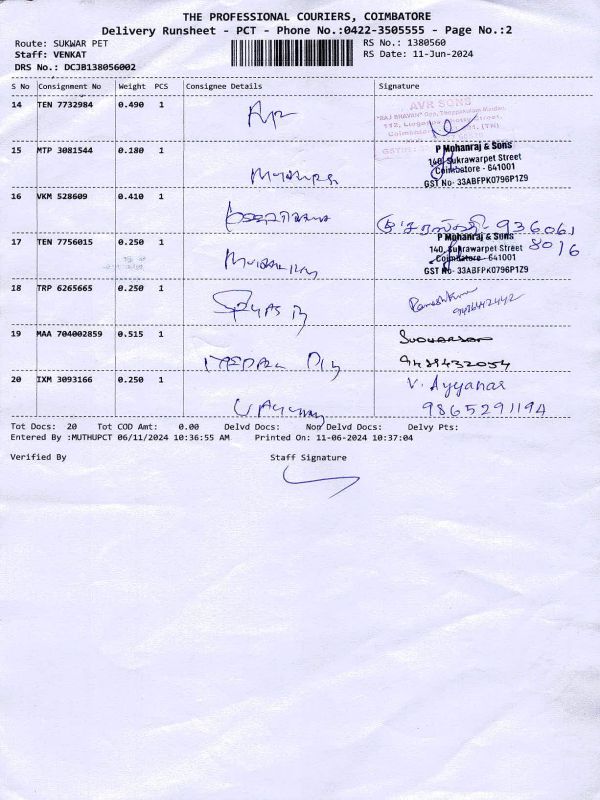 THE PROFESSIONAL COURIERS, COIMBATORE
Delivery Runsheet - PCT - Phone No.:0422-3505555 - Page No.:2
Route: SUKWAR PET
RS No.: 1380560
Staff: VENKAT
RS Date: 11-Jun-2024
DRS No.: DCJB138056002
S No Consignment No Weight PCS Consignee Details Signature
14 TEN 7732984 0.490 1
AVR SONS
15 MTP 3081544 0.180 1
P Mohanraj & Sons
140, Sukrawarpet Street
Coimbatore - 641001
GST No- 33ABFPK0796P1Z9
16 VKM 528609 0.410 1
936061
8016
17 TEN 7756015 0.250 1
P Mohanraj & Sons
140, Sukrawarpet Street
Coimbatore - 641001
GST No- 33ABFPK0796P1Z9
18 TRP 6265665 0.250 1
Rameshkumar
19 MAA 704002859 0.515 1
SUDHARSAN
9488432054
20 IXM 3093166 0.250 1
V. Ayyanar
9865291194
Tot Docs: 20 Tot COD Amt: 0.00 Delvd Docs: Non Delvd Docs: Delvy Pts:
Entered By :MUTHUPCT 06/11/2024 10:36:55 AM Printed On: 11-06-2024 10:37:04
Verified By Staff Signature